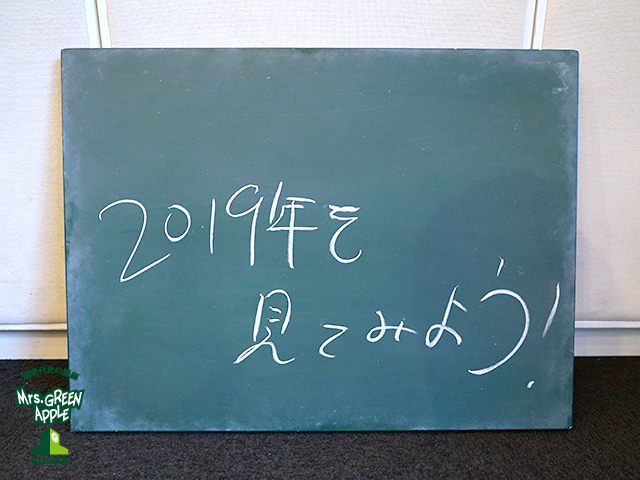 2019年を
見てみよう!
Mrs. GREEN
APPLE